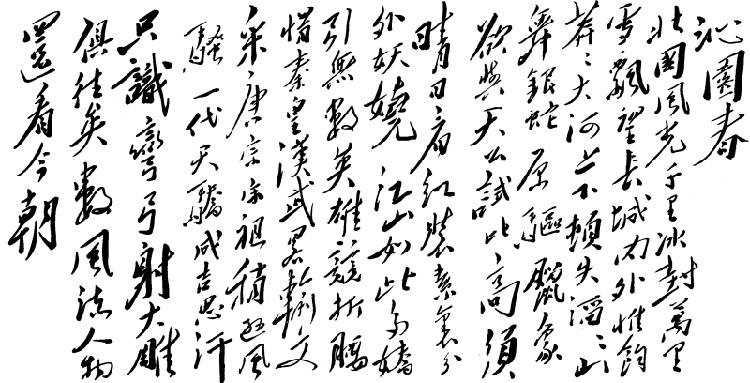 沁園春
北國風光千里冰封萬里
雪飄望長城内外惟餘
莽々大河上下頓失滔々山
舞銀蛇原驅臘象
欲與天公試比高須
晴日看红裝素裹分
外妖嬈江山如此多嬌
引無數英雄競折腰
惜秦皇漢武畧輸文
采唐宗宋祖稍遜風
騷一代天驕成吉思汗
只識彎弓射大雕
俱往矣數風流人物
還看今朝